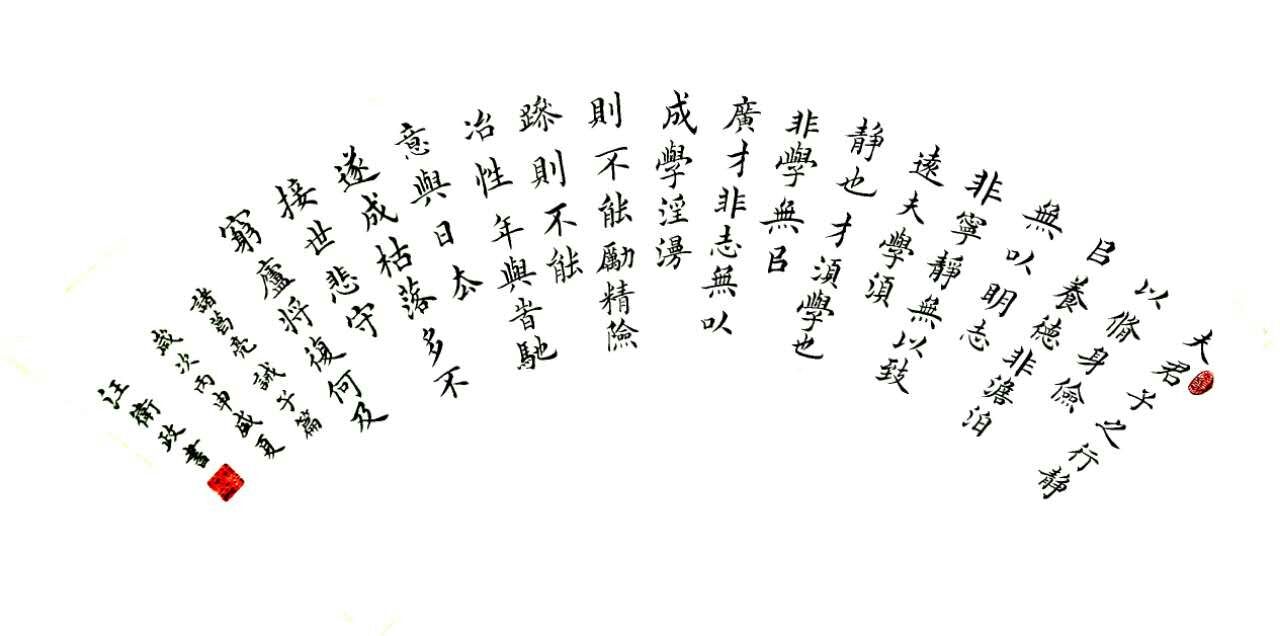 夫君子之行静
以脩身儉
㠯養德非澹泊
無以明志
非寧靜無以致
遠夫學須
静也才須學也
非學無㠯
廣才非志無以
成學淫漫
則不能勵精險
躁則不能
冶性年與旹馳
意與日去
遂成枯落多不
接世悲守
窮廬将復何及
諸葛亮誡子篇
歲次丙申盛夏
汪衛政書